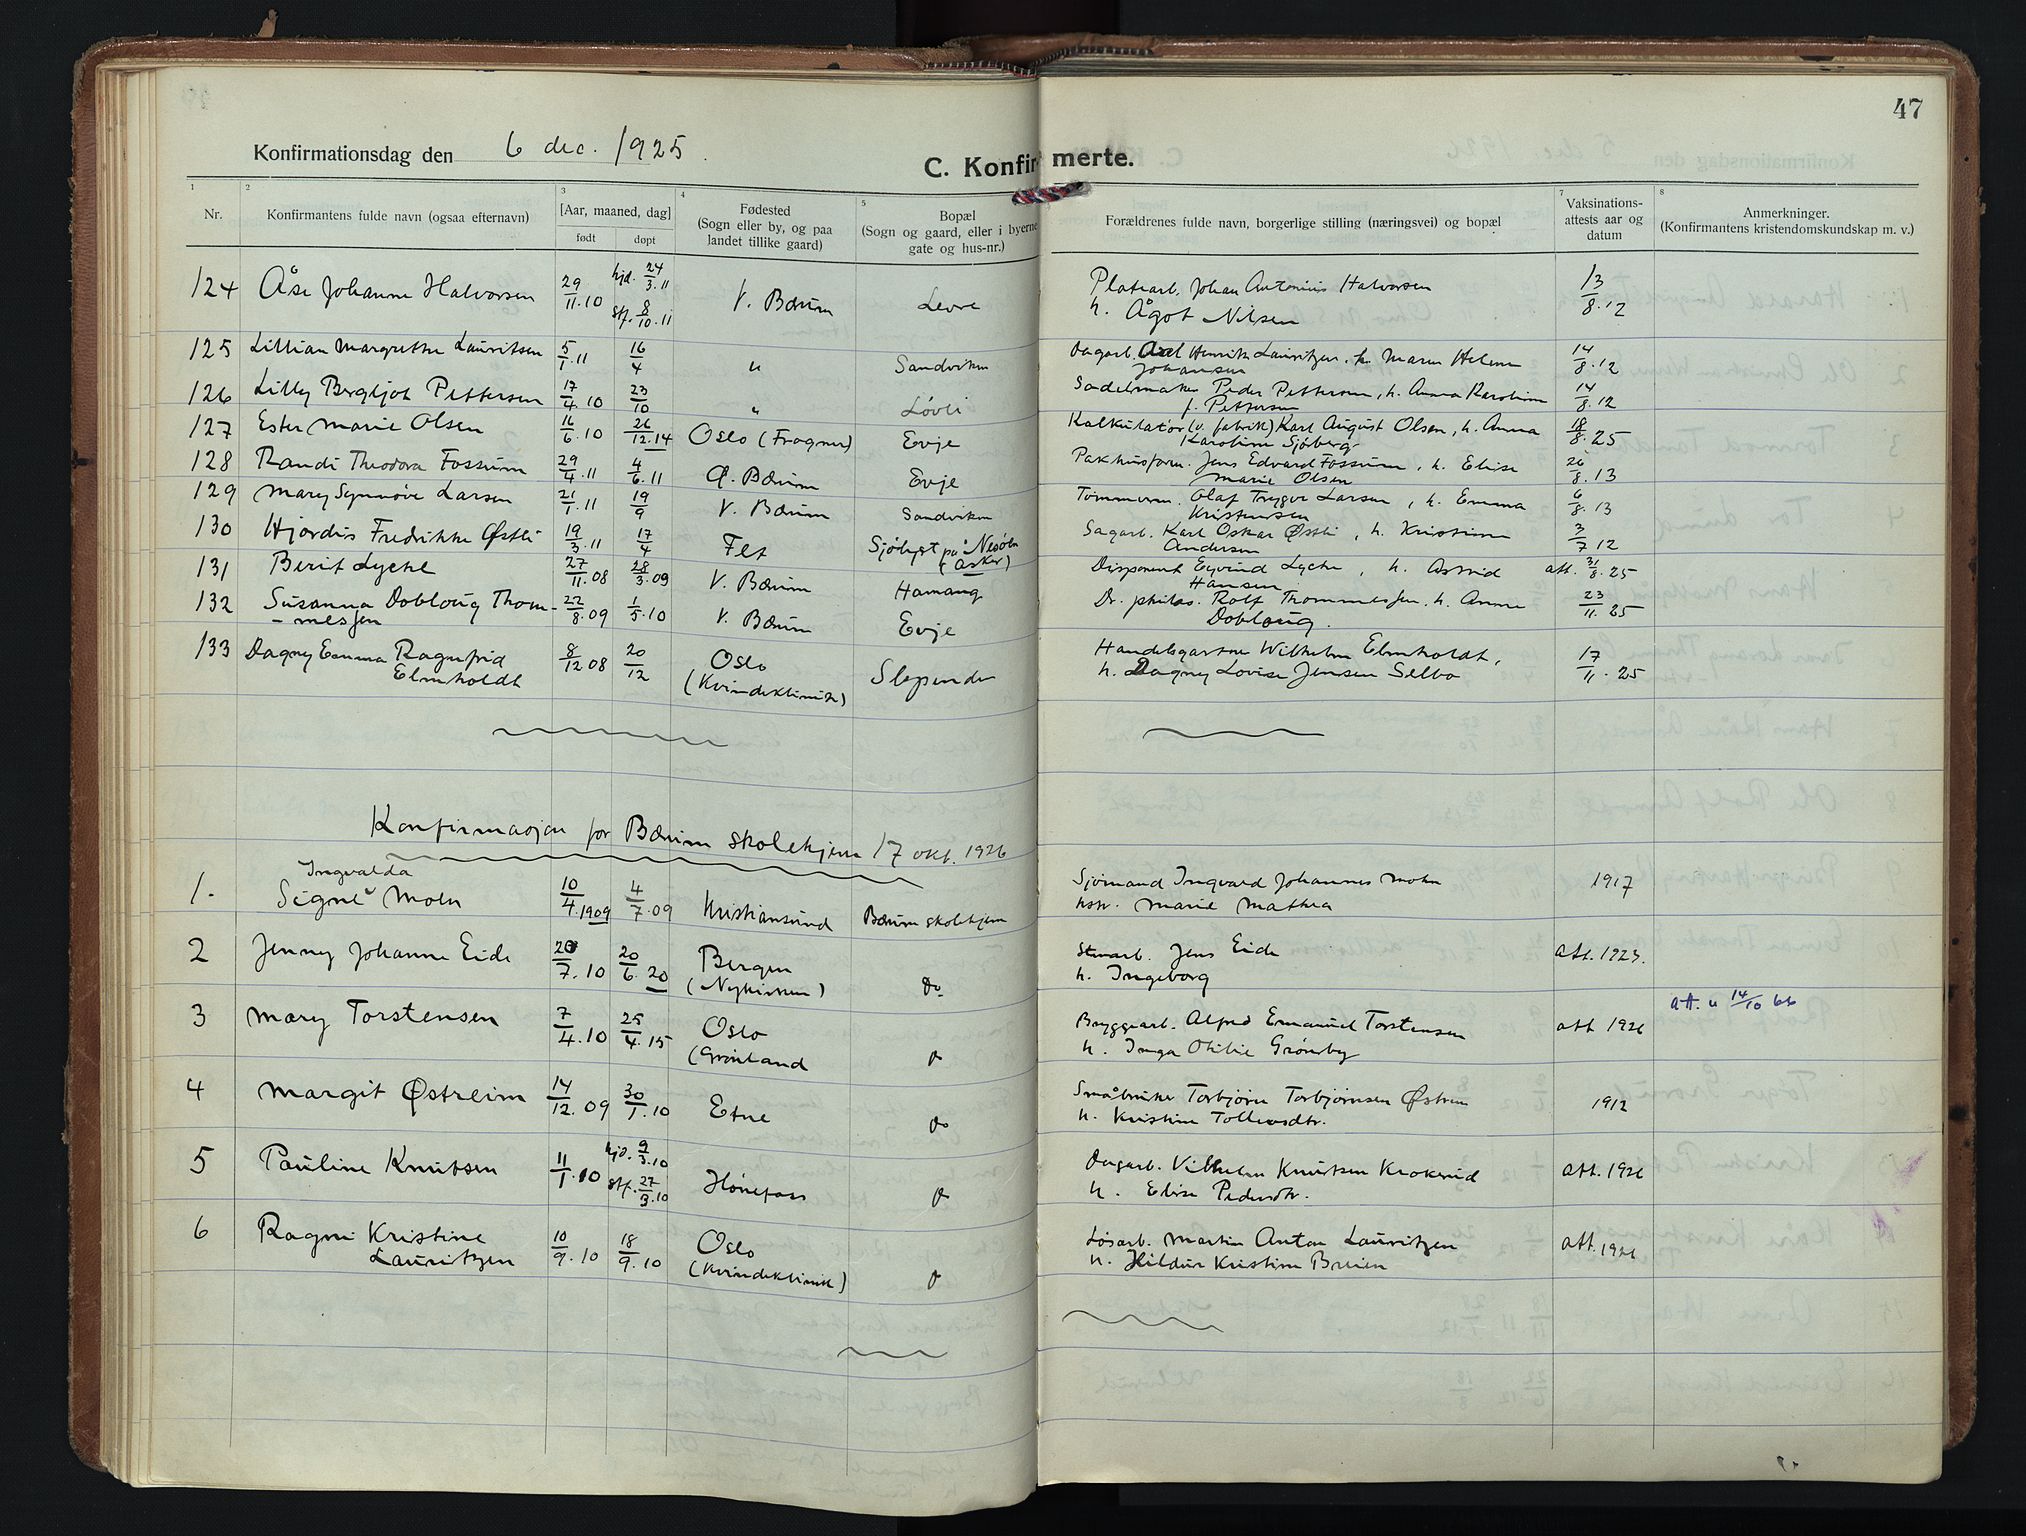 47
Konfirmationsdag den 6 dec. 1925.
C. Konfirmerte.
1 2 3 4 5 7 8
Nr.
Konfirmantens fulde navn (ogsaa efternavn)
[Aar, maaned, dag]
født døpt
Fødested
(Sogn eller by, og paa
landet tillike gaard)
Bopæl
(Sogn og gaard, eller i byerne
gate og hus-nr.)
Forældrenes fulde navn, borgerlige stilling (næringsvei) og bopæl
Vaksinations-
attests aar og
datum
Anmerkninger.
(Konfirmantens kristendomskundskap m. v.)
124 Åse Johanne Halvorsen 29/11.10 hjd. 24/3.11 V. Bærum Levre Platearb. Johan Antonius Halvorsen 13/8.12
stf. 8/10.11 h. Ågot Nilsen
125 Lillian Margrethe Lauritsen 5/1.11 16/4 " Sandviken Dagarb. Axel Henrik Lauritzen, h. Maren Helene 14/8.12
Johansen
126 Lilly Bergljot Pettersen 17/4.10 23/10 " Løvli Sadelmaker Peder Pettersen, h. Anna Karoline 14/8.12
f. Pettersen
127 Ester Marie Olsen 16/6.10 26/12.14 Oslo (Frogner) Evje Kalkulatør (v. fabrik) Karl August Olsen, h. Anna 18/8.25
Karoline Sjøberg
128 Randi Theodora Fossum 29/4.11 4/6.11 Ø. Bærum Evje Pakhusform. Jens Edvard Fossum, h. Elise 26/8.13
Marie Olsen
129 Mary Synnøve Larsen 21/1.11 19/9 V. Bærum Sandviken Tømmerm. Olaf Trygve Larsen, h. Emma 6/8.13
Kristensen
130 Hjørdis Fredrikke Østli 19/3.11 17/4 Fet Sjølyst på Nesøen Sagarb. Karl Oskar Østli, h. Kristine 3/7 12
(Asker) Andersen
131 Berit Lyche 27/11.08 28/3.09 V. Bærum Hamang Disponent Eyvind Lyche, h. Astrid att. 31/8.25
Hansen
132 Susanna Dobloug Thom- 22/8.09 1/5.10 V. Bærum Evje Dr. philos. Rolf Thommessen, h. Anne 23/11.25
-messen Dobloug.
133 Dagny Emma Ragnfrid 8/12 08 20/12 Oslo Slependen Handelsgartner Wilhelm Elmholdt, 17/11.25
Elmholdt (Kvindeklinik) h. Dagny Lovise Jensen Selbo
Konfirmasjon for Bærum skolehjem 17 okt. 1926
Ingvalda
1. Signe Mohn 10/4.1909 4/7.09 Kristiansund Bærum skolehjem Sjømand Ingvard Johannes Mohn 1917
hstr. Marie Mathea
2 Jenny Johanne Eide 20/7.10 20/6.20 Bergen do. Stuearb. Jens Eide att. 1923.
(Nykirken) h. Ingeborg
3 Mary Torstensen 7/4.10 25/4.15 Oslo do Bryggearb. Alfred Emanuel Torstensen att 1926 att. u 14/10 66
(Grønland h. Inga Otilie Grønsby
4 Margit Østreim 14/12.09 30/1.10 Etne do Småbruker Torbjørn Torbjørnsen Østrem 1912
h. Kristine Tollevsdtr.
5 Pauline Knutsen 11/1.10 hjd. 9/3.10 Hønefoss do Dagarb. Vilhelm Knutsen Krokerud att. 1926
stf. 27/3.10 h. Elise Pedersdtr.
6 Ragni Kristine 10/9.10 18/9.10 Oslo do Løsarb. Martin Anton Lauritzen att. 1926
Lauritzen (Kvindeklinik) h. Hildur Kristine Breien